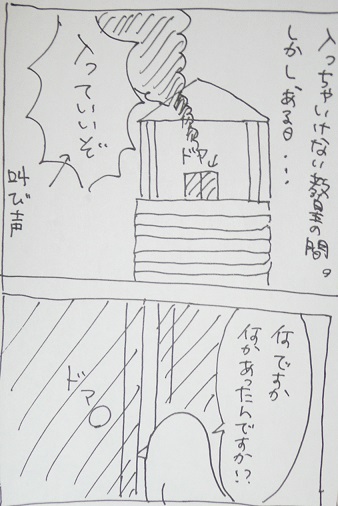 入っちゃいけない教皇の間。
しかし、ある日・・・
ドア
入っていいぞ
叫び声
何ですか
何かあったんですか!?
ドア